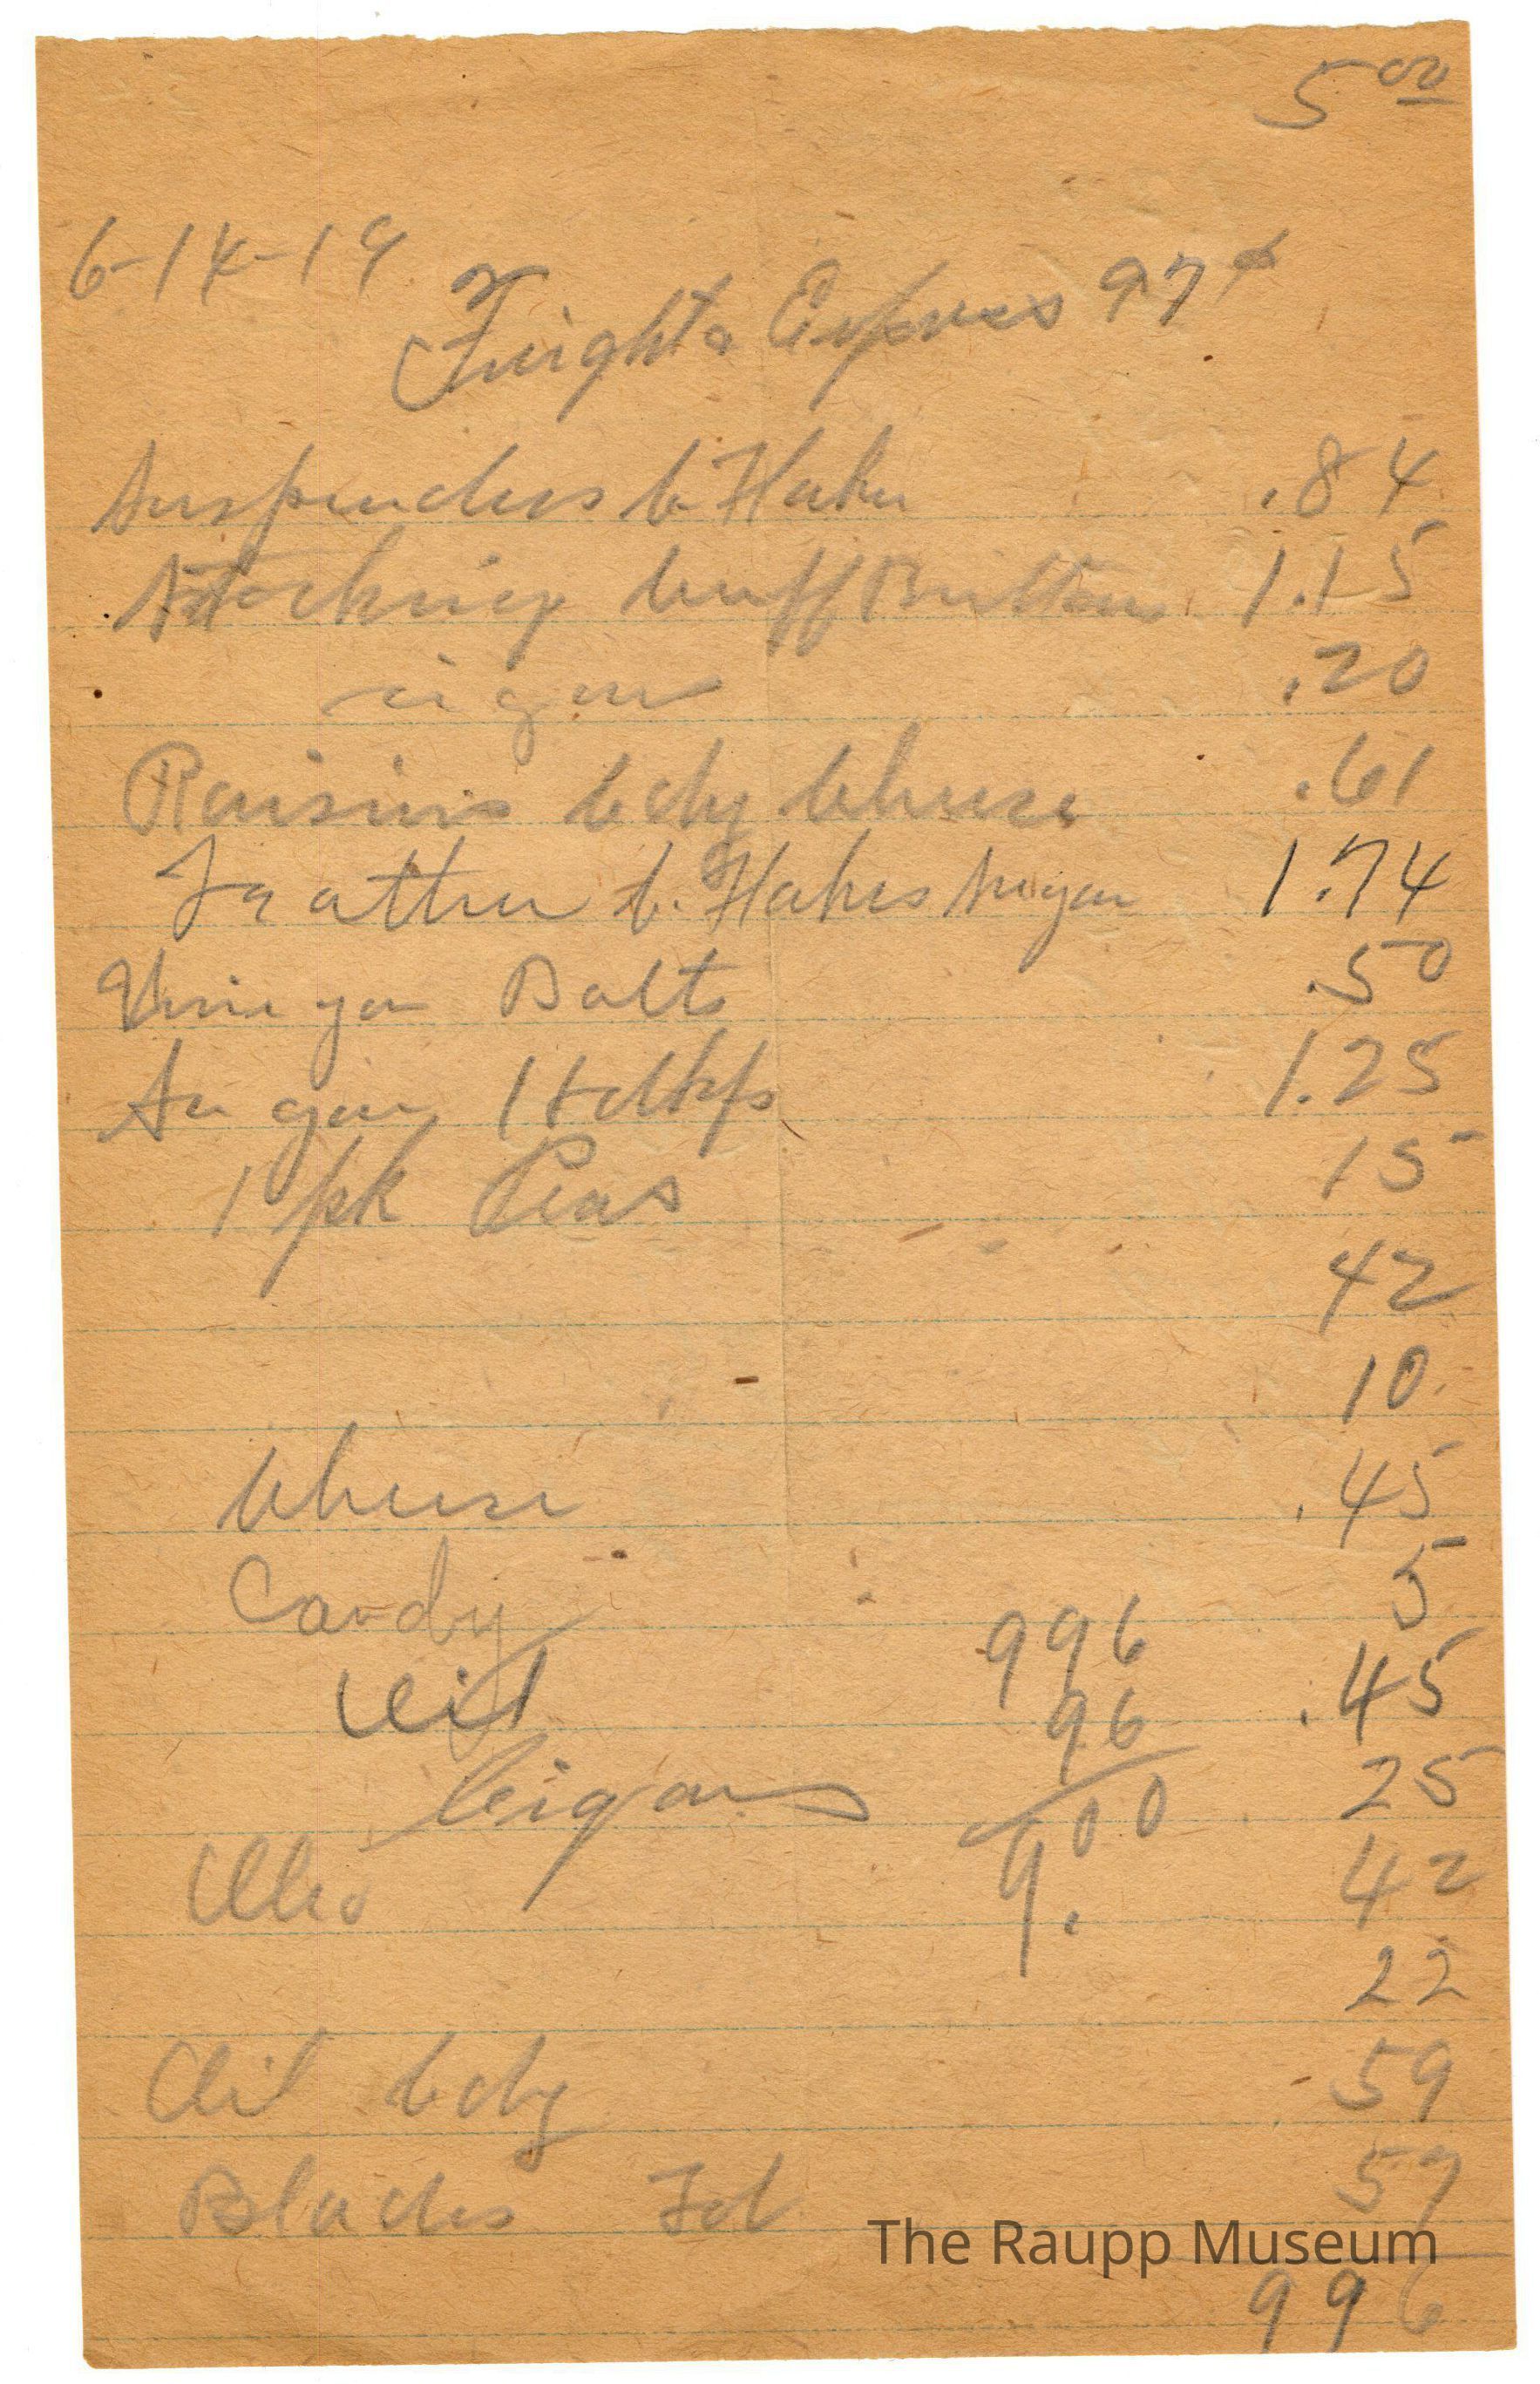 5 00
6-14-19
Freight & Express 97¢
Suspenders C. Hahn .84
Stocking Cuff Buttons 1.15
cigars .20
Raisins Cdy Cheese .61
Leather C. Hahns Sugar 1.74
Vinegar Bolts .50
Sugar 1 Hdkfs 1.25
1 pk Peas 15
42
10
Cheese .45
Candy 5
996
Oil .45
96
Cigars 25
9.00
Oleo 42
22
Oil Cdy 59
Blades Fd 57
The Raupp Museum
996